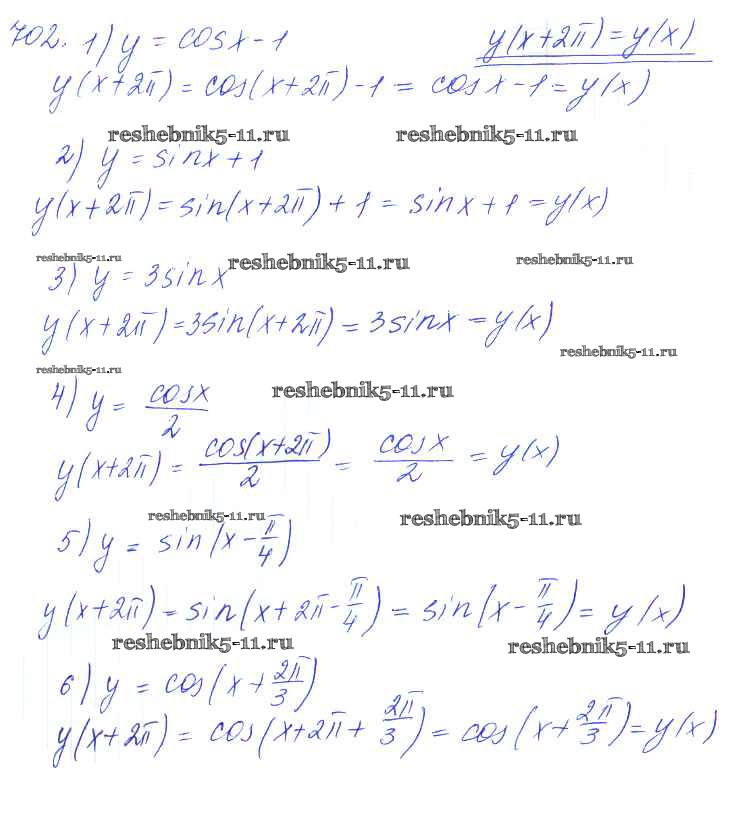 702. 1) y = cosx - 1    y(x+2π) = y(x)
y(x+2π) = cos(x+2π) - 1 = cosx - 1 = y(x)
reshebnik5-11.ru reshebnik5-11.ru
2) y = sinx + 1
y(x+2π) = sin(x+2π) + 1 = sinx + 1 = y(x)
reshebnik5-11.ru reshebnik5-11.ru reshebnik5-11.ru
3) y = 3sinx
y(x+2π) = 3sin(x+2π) = 3sinx = y(x)
reshebnik5-11.ru
reshebnik5-11.ru reshebnik5-11.ru
4) y = cosx/2
y(x+2π) = cos(x+2π)/2 = cosx/2 = y(x)
reshebnik5-11.ru reshebnik5-11.ru
5) y = sin(x - π/4)
y(x+2π) = sin(x+2π - π/4) = sin(x - π/4) = y(x)
reshebnik5-11.ru reshebnik5-11.ru
6) y = cos(x + 2π/3)
y(x+2π) = cos(x+2π + 2π/3) = cos(x + 2π/3) = y(x)